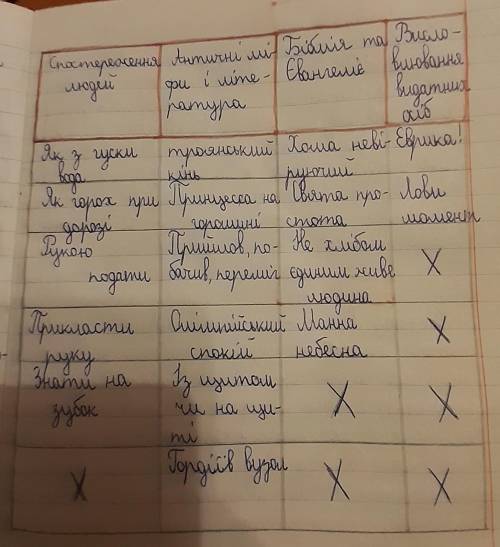 Спостереження
людей
Античні мі-
фи і літе-
ратура
Біблія та
Євангеліє
Висло-
влювання
видатних
осіб
Як з гуски
вода
троянський
кінь
Хома неві-
руючий
Еврика!
Як горох при
дорозі
Принцеса на
горошині
Свята про-
стота
Лови
момент
Рукою
подати
Прийшов, по-
бачив, переміг
Не хлібом
єдиним живе
людина
X
Прикласти
руку
Олімпійський
спокій
Манна
небесна
X
Знати на
зубок
Із щитом
чи на щи-
ті
X
X
X
Гордіїв вузол
X
X